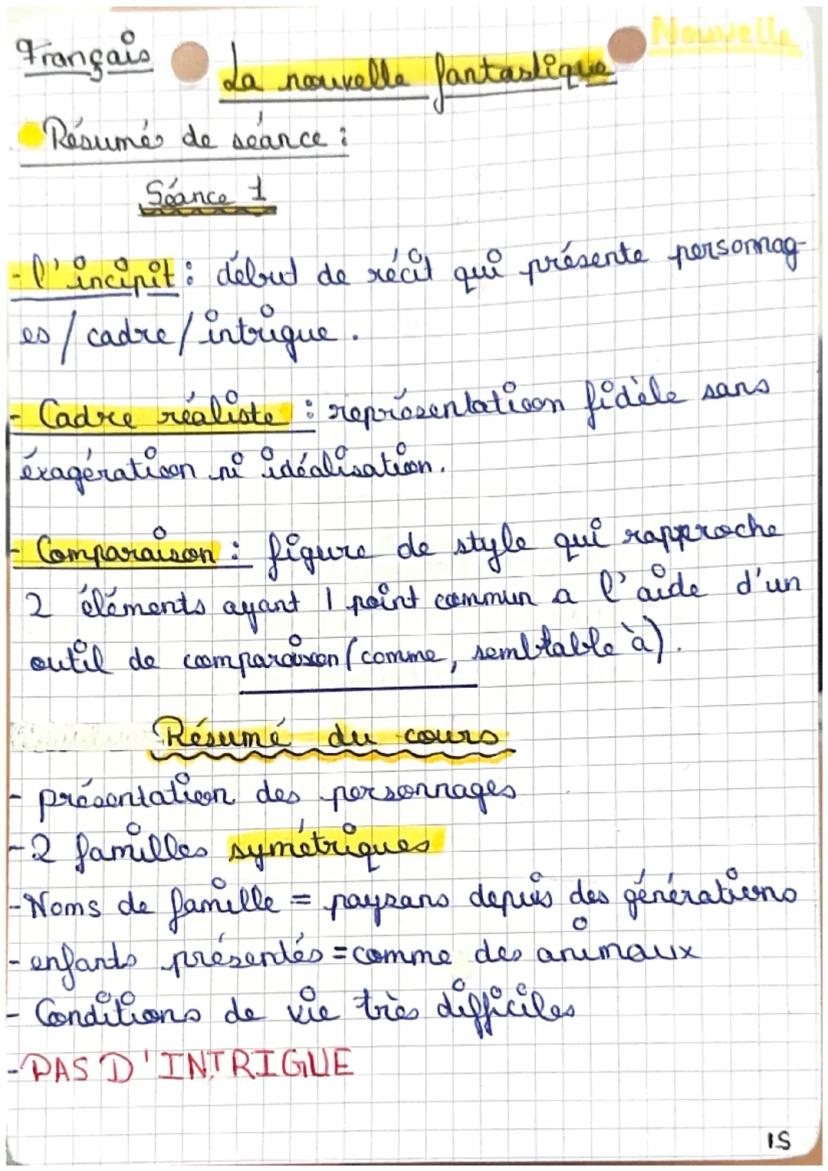 Français
La nouvelle fantastique
Nouvelle
Résumés de séance :
Séance 1
- l'incipit : début de récit qui présente personnag-
es / cadre / intrigue .
- Cadre réaliste : représentation fidèle sans
éxagération ni idéalisation.
- Comparaison : figure de style qui rapproche
2 éléments ayant 1 point commun a l'aide d'un
outil de comparaison (comme, semblable à).
Résumé du cours
- présentation des personnages
- 2 familles symétriques
- Noms de famille = paysans depuis des générations
- enfants présentés = comme des animaux
- Conditions de vie très difficiles
- PAS D'INTRIGUE
IS